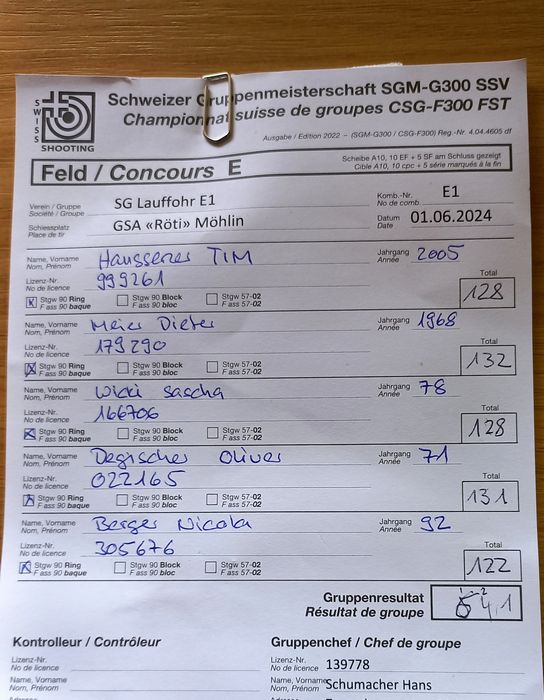 SWISS
SHOOTING
Schweizer Gruppenmeisterschaft SGM-G300 SSV
Championnat suisse de groupes CSG-F300 FST
Ausgabe / Edition 2022 – (SGM-G300 / CSG-F300) Reg.-Nr. 4.04.4605 df
Feld / Concours E
Scheibe A10, 10 EF + 5 SF am Schluss gezeigt
Cible A10, 10 cpc + 5 série marqués à la fin
Verein / Gruppe SG Lauffohr E1 Komb.-Nr. E1
Société / Groupe No de comb.
Schiessplatz GSA «Röti» Möhlin Datum 01.06.2024
Place de tir Date
Name, Vorname Haussener TIM Jahrgang 2005
Nom, Prénom Année
Lizenz-Nr. 999261 Total
No de licence 128
Stgw 90 Ring Stgw 90 Block Stgw 57-02
F ass 90 baque F ass 90 bloc F ass 57-02
Name, Vorname Meier Dieter Jahrgang 1968
Nom, Prénom Année
Lizenz-Nr. 179290 Total
No de licence 132
Stgw 90 Ring Stgw 90 Block Stgw 57-02
F ass 90 baque F ass 90 bloc F ass 57-02
Name, Vorname Wicki Sascha Jahrgang 78
Nom, Prénom Année
Lizenz-Nr. 166706 Total
No de licence 128
Stgw 90 Ring Stgw 90 Block Stgw 57-02
F ass 90 baque F ass 90 bloc F ass 57-02
Name, Vorname Degischer Oliver Jahrgang 71
Nom, Prénom Année
Lizenz-Nr. 022165 Total
No de licence 131
Stgw 90 Ring Stgw 90 Block Stgw 57-02
F ass 90 baque F ass 90 bloc F ass 57-02
Name, Vorname Berger Nicola Jahrgang 92
Nom, Prénom Année
Lizenz-Nr. 305676 Total
No de licence 122
Stgw 90 Ring Stgw 90 Block Stgw 57-02
F ass 90 baque F ass 90 bloc F ass 57-02
Gruppenresultat
Résultat de groupe
Kontrolleur / Contrôleur Gruppenchef / Chef de groupe
Lizenz-Nr. Lizenz-Nr. 139778
No de licence No de licence
Name, Vorname Name, Vorname Schumacher Hans
Nom, Prénom Nom, Prénom